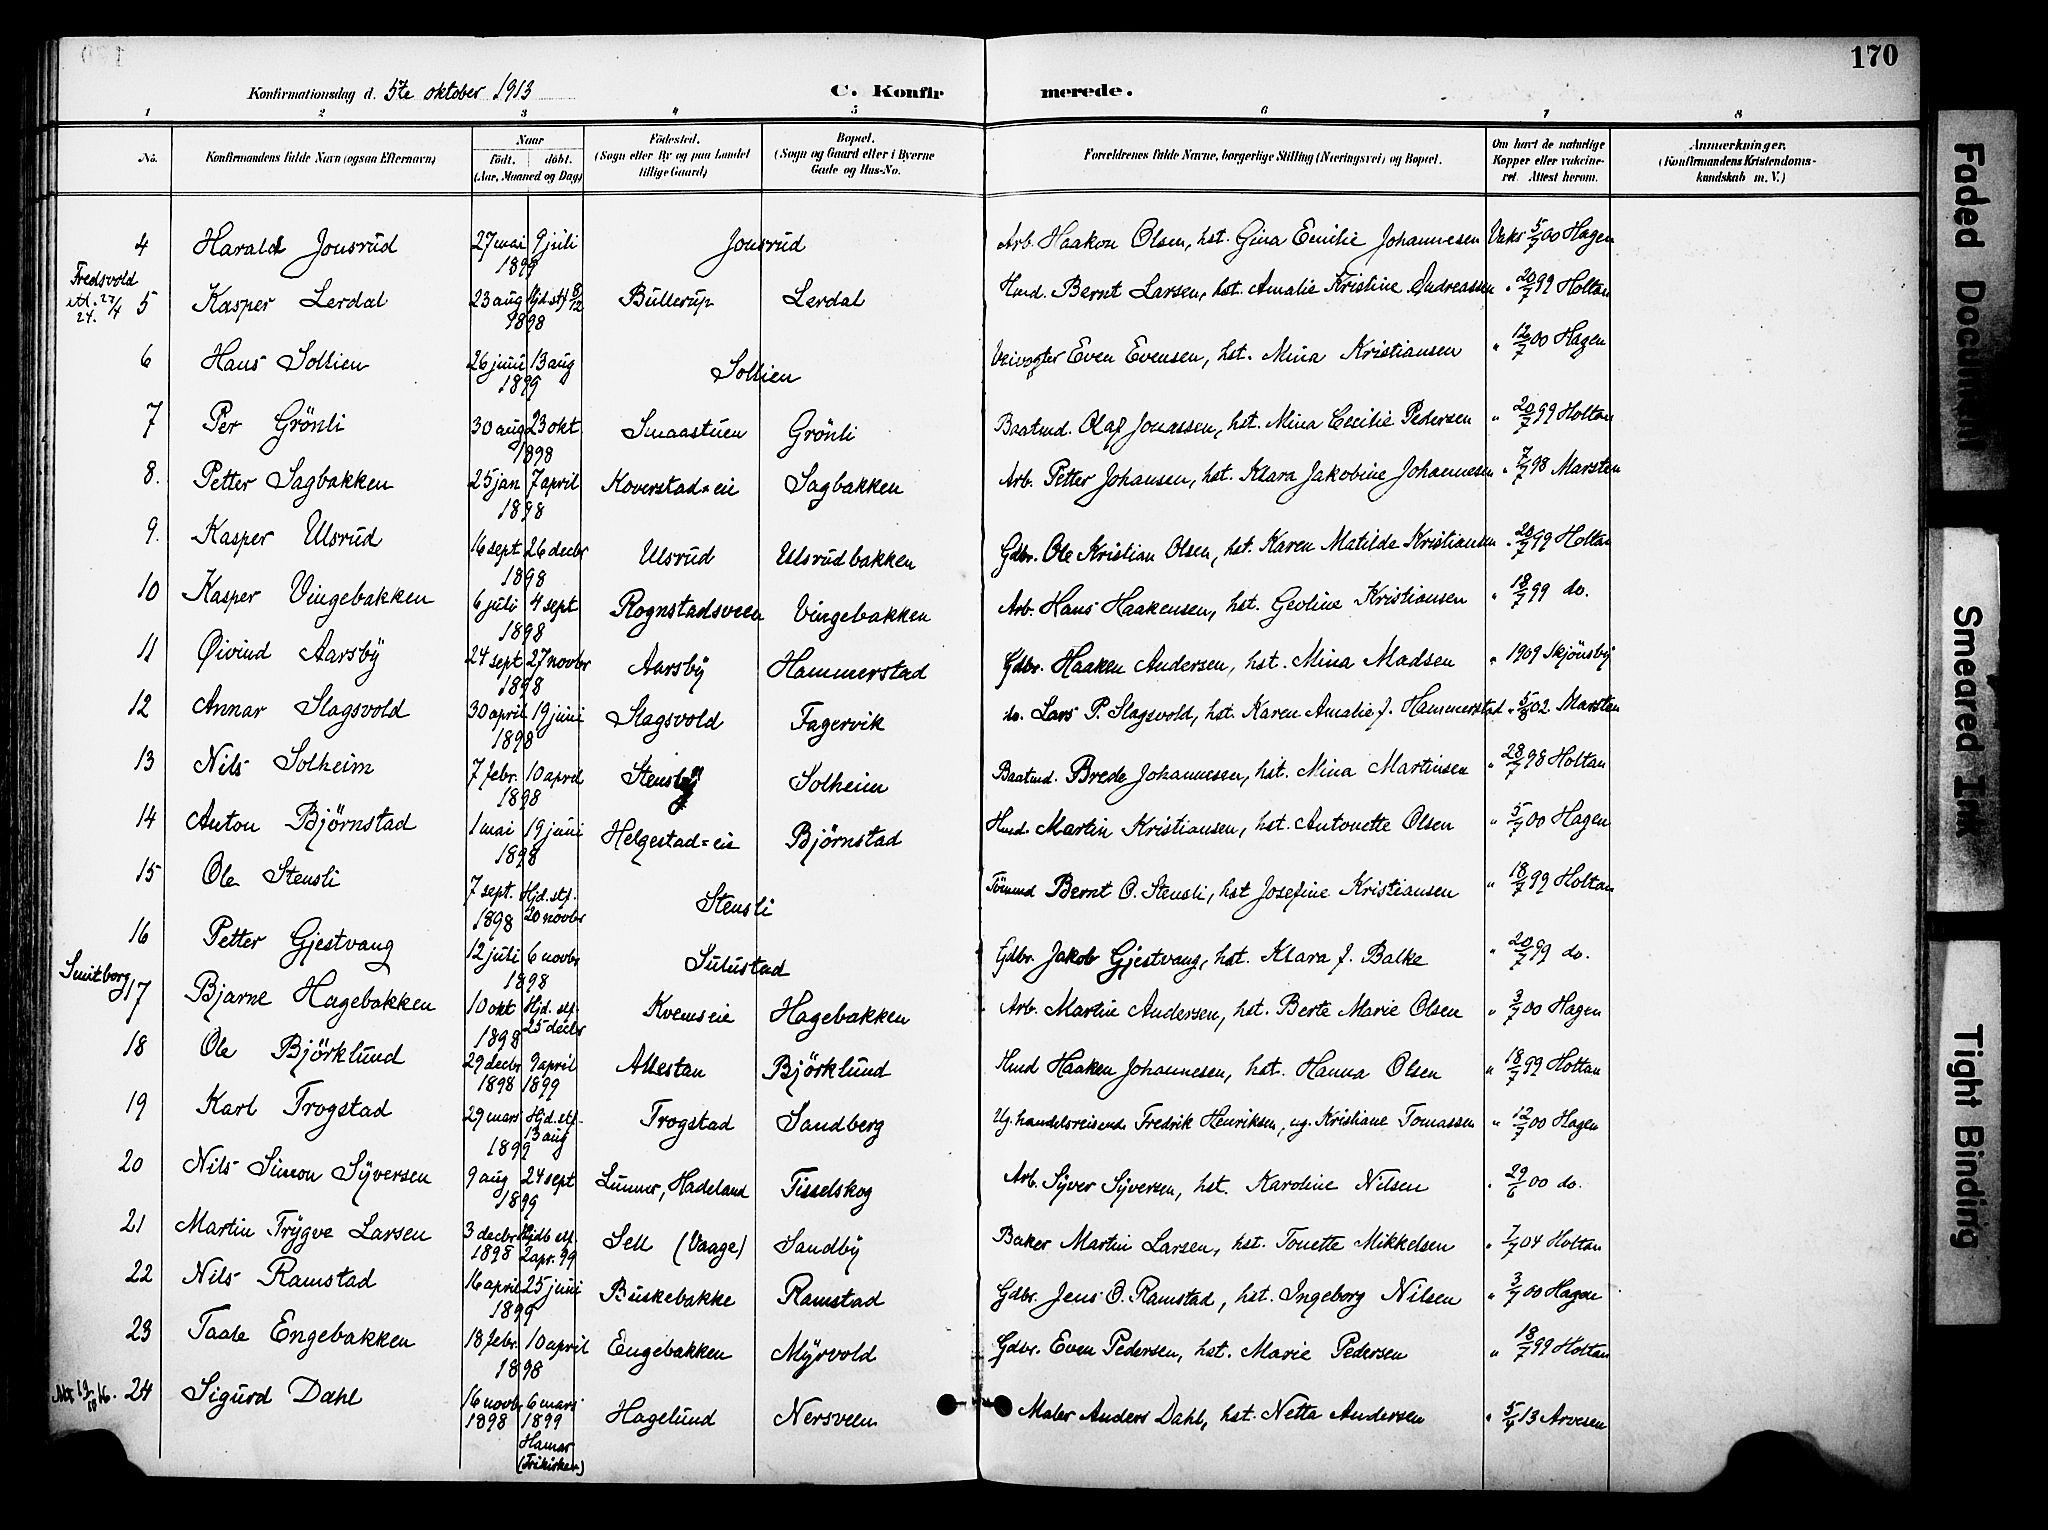 170
Konfirmationsdag d. 5te oktober 1913 C. Konfirmerede.
1 2 3 4 5 6 7 8
No. Konfirmandens fulde Navn (ogsaa Efternavn) Naar født. døbt. (Aar, Maaned og Dag) Fødested. (Sogn eller By og paa Landet tillige Gaard) Bopæl. (Sogn og Gaard eller i Byerne Gade og Hus-No. Forældrenes fulde Navne, borgerlige Stilling (Næringsvei) og Bopæl. Om havt de naturlige Kopper eller vaccineret. Attest herom. Anmærkninger. (Konfirmandens Kristendomskundskab m. V.)
4 Harald Jonsrud 27 mai 9 juli 1899 Jonsrud Arb. Haakon Olsen, hst. Gina Emilie Johannesen Vaks 5/7 00 Hagen
Fredsvold
5 Kasper Lerdal 23 aug Hjd. stf 8/12 1898 Bullerup Lerdal Hmd. Bernt Larsen, hst. Amalie Kristine Andreassen " 20/7 99 Holtan
6 Hans Sollien 26 juni 13 aug 1899 Sollien Veivogter Even Evensen, hst. Mina Kristiansen " 12/7 00 Hagen
7 Per Grönli 30 aug 23 okt 1898 Smaastuen Grönli Baatmd. Olaf Jonassen, hst. Mina Cecilie Pedersen " 20/7 99 Holtan
8. Petter Sagbakken 25 jan 7 april 1898 Koverstad=eie Sagbakken Arb. Petter Johansen, hst. Klara Jakobine Johannesen " 7/7 98 Marsten
9. Kasper Ulsrud 16 sept 26 decbr 1898 Ulsrud Ulsrudbakken Gdbr. Ole Kristian Olsen, hst. Karen Matilde Kristiansen " 20/7 99 Holtan
10 Kasper Vingebakken 6 juli 4 sept 1898 Rognstadsveen Vingebakken Arb. Hans Haakensen, hst. Geoline Kristiansen " 18/7 99 do.
11 Øivind Aarsby 24 sept 27 novbr 1898 Aarsby Hammerstad Gdbr. Haaken Andersen, hst. Mina Madsen " 1909 Skjönsby
12 Annar Slagsvold 30 april 19 juni 1898 Slagsvold Fagervik do. Lars P. Slagsvold, hst. Karen Amalie f. Hammerstad " 5/8 02 Marsten
13 Nils Solheim 7 febr. 10 april 1898 Stensby Solheim Baatmd. Brede Johannesen, hst. Mina Martinsen " 28/7 98 Holtan
14 Anton Bjørnstad 1 mai 19 juni 1898 Helgestad=eie Bjørnstad Hmd. Martin Kristiansen, hst. Antonette Olsen " 5/7 00 Hagen
15 Ole Stensli 7 sept. Hjd. stf. 1898 20 novbr Stensli Tömmd Bernt O. Stensli, hst Josefine Kristiansen " 18/7 99 Holtan
16 Petter Gjestvang 12 juli 6 novbr 1898 Sulustad Gdbr. Jakob Gjestvang, hst. Klara f. Balke " 20/7 99 do.
Smitborg
17 Bjarne Hagebakken 10 okt Hjd. stf. 1898 25 decbr Kvemseie Hagebakken Arb. Martin Andersen, hst. Berte Marie Olsen " 3/7 00 Hagen
18 Ole Björklund 29 decbr 9 april 1898 1899 Allestan Björklund Hmd Haaken Johannesen, hst. Hanna Olsen " 18/7 99 Holtan
19 Karl Trogstad 29 mars Hjd. stf. 13 aug 1899 Trogstad Sandberg Ug. handelsreisende Fredrik Henriksen, ug. Kristiane Tomassen " 12/7 00 Hagen
20 Nils Simon Syversen 9 aug 24 sept 1899 Lunner, Hadeland Tisselskog Arb. Syver Syversen, hst. Karoline Nilsen " 29/6 00 do.
21 Martin Trygve Larsen 3 decbr Hjds stf. 1898 2 apr. 99 Sell (Vaage) Sandby Baker Martin Larsen, hst. Tonette Mikkelsen " 1/7 04 Holtan
22 Nils Ramstad 16 april 25 juni 1899 Buskebakke Ramstad Gdbr. Jens O. Ramstad, hst. Ingeborg Nilsen " 3/7 00 Hagen
23 Taale Engebakken 18 febr. 10 april 1898 Engebakken Myrvold Gdbr. Even Pedersen, hst. Marie Pedersen " 18/7 99 Holtan
24 Sigurd Dahl 16 novbr 6 mars 1898 1899 Hamar (Frikirken) Hagelund Nersveen Maler Anders Dahl, hst. Netta Andersen " 5/4 13 Arvesen
Faded Document
Smeared Ink
Tight Binding